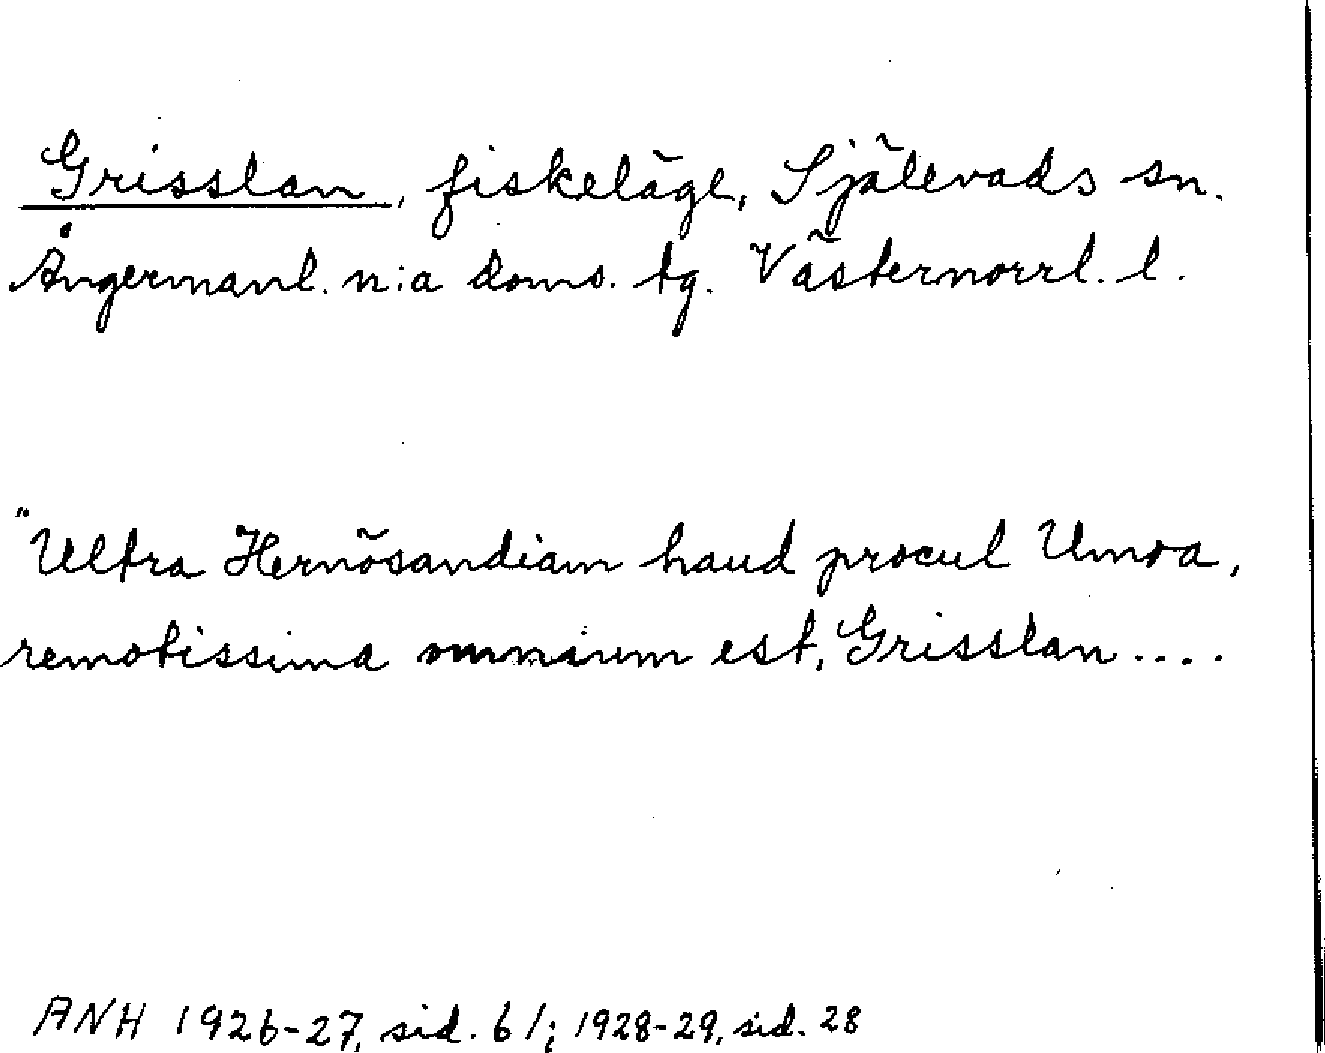 Grisslan, fiskeläge, Själevads sn.
Ångermanl. n:a doms. tg. Västernorrl. l.
"Ultra Hernösandiam haud procul Umoa,
remotissima omnium est, Grisslan ....
ANH 1926-27, sid. 61; 1928-29, sid. 28